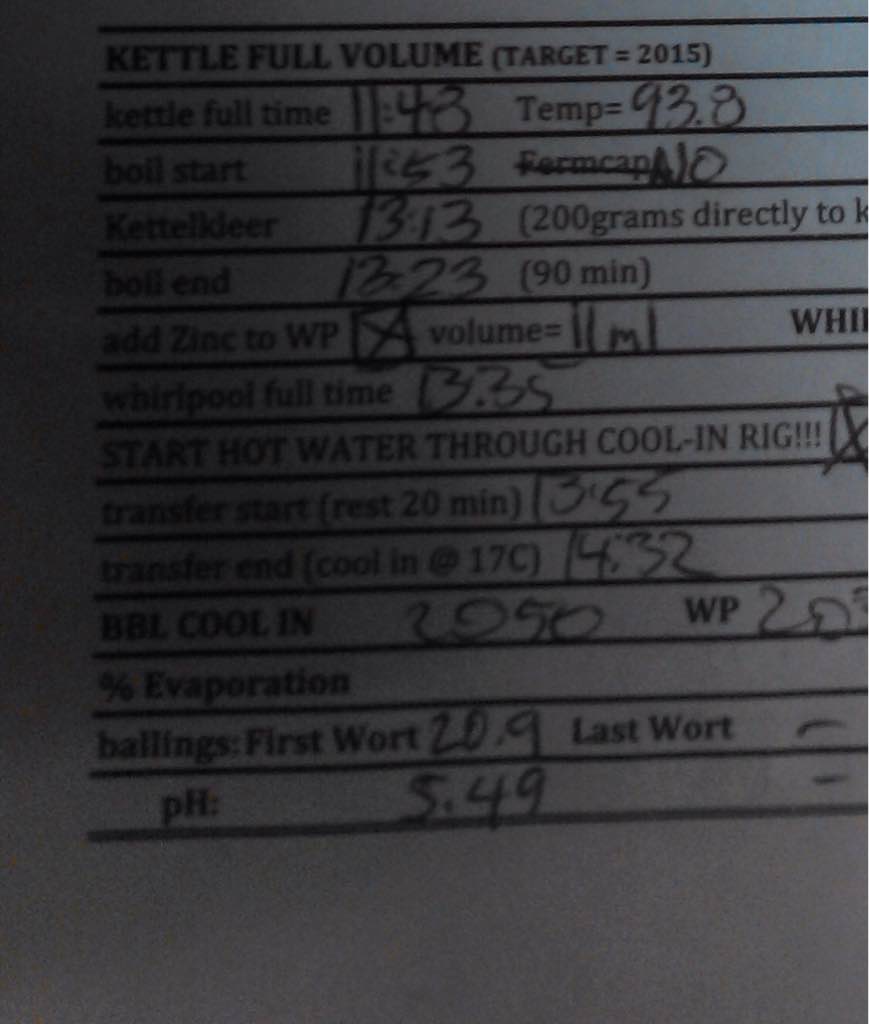 KETTLE FULL VOLUME (TARGET = 2015)
kettle full time 11:43 Temp= 93.8
boil start 11:53 Fermcap NO
Kettelkleer 13:13 (200grams directly to k
boil end 13:23 (90 min)
add Zinc to WP volume= 11ml WHI
whirlpool full time 13:35
START HOT WATER THROUGH COOL-IN RIG!!!
transfer start (rest 20 min) 13:55
transfer end (cool in @ 17C) 14:32
BBL COOL IN 2050 WP 20
% Evaporation
ballings: First Wort 20.9 Last Wort –
pH: 5.49 –